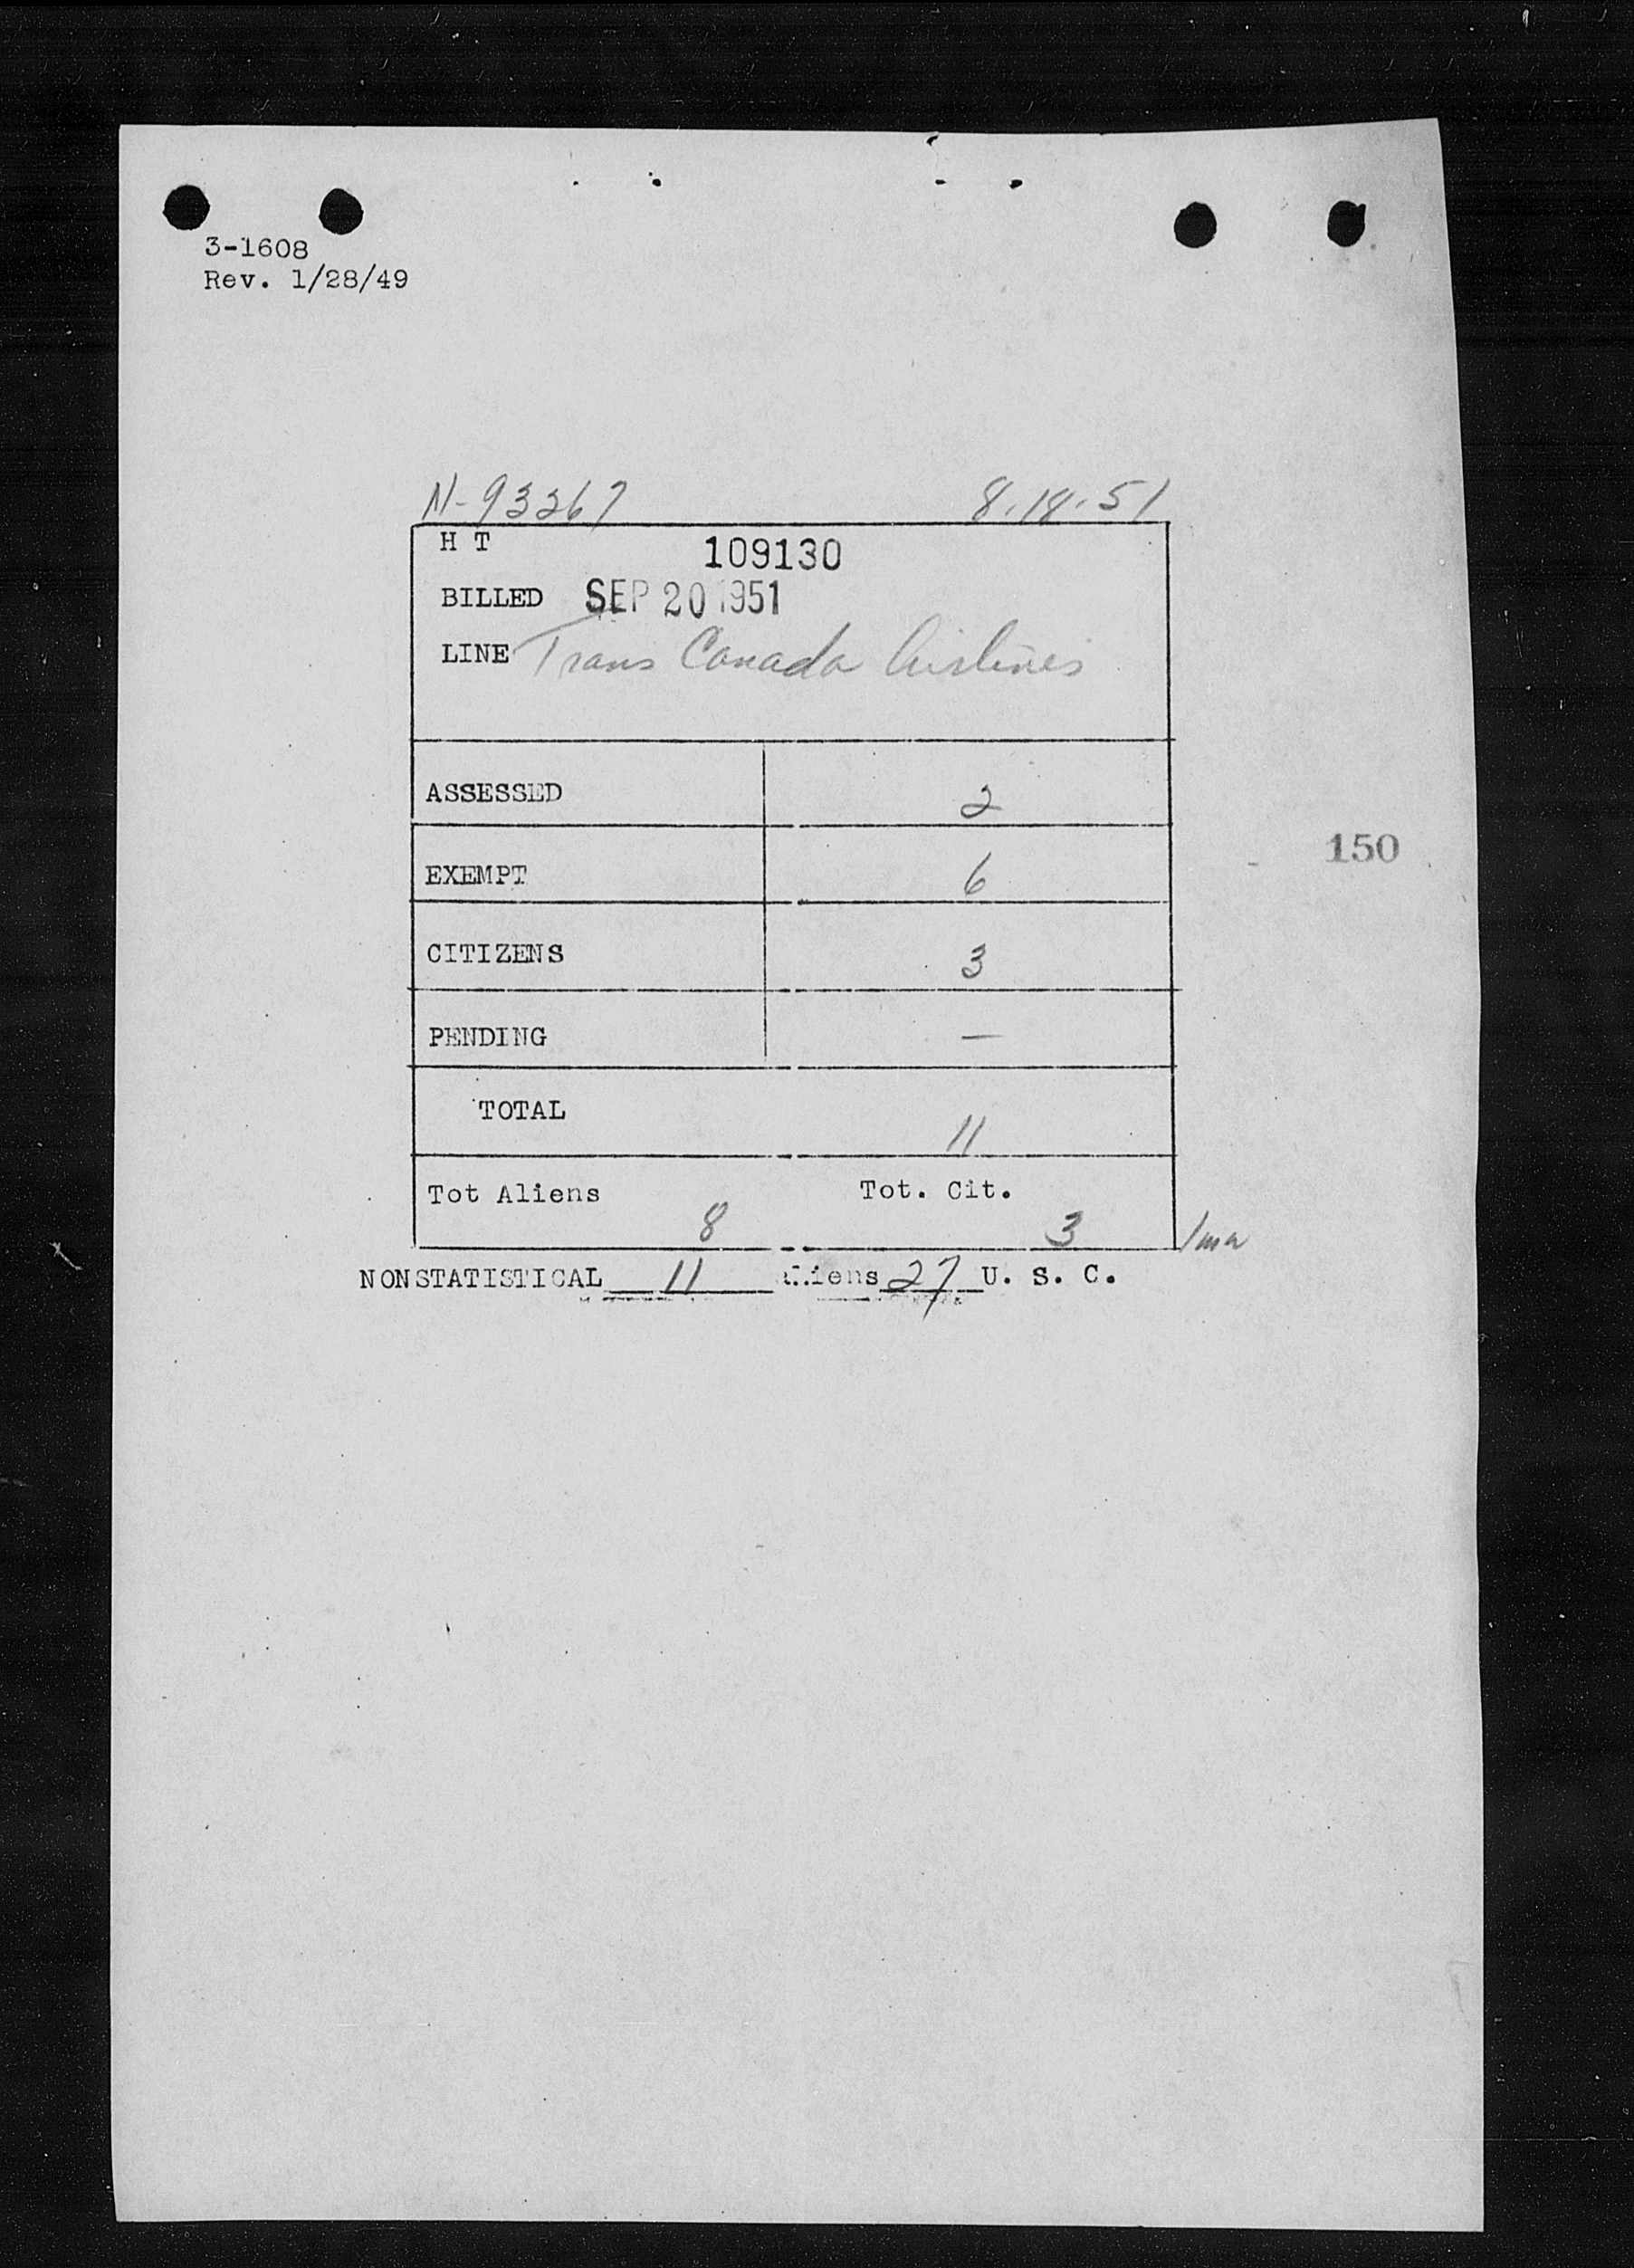 3-1608
Rev. 1/28/49
N-93367 8.18.51
H T 109130
BILLED SEP 20 1951
LINE Trans Canada Airlines
ASSESSED 2
150
EXEMPT 6
CITIZENS 3
PENDING —
TOTAL 11
Tot Aliens 8 Tot. Cit. 3
NONSTATISTICAL 11 aliens 27 U. S. C.